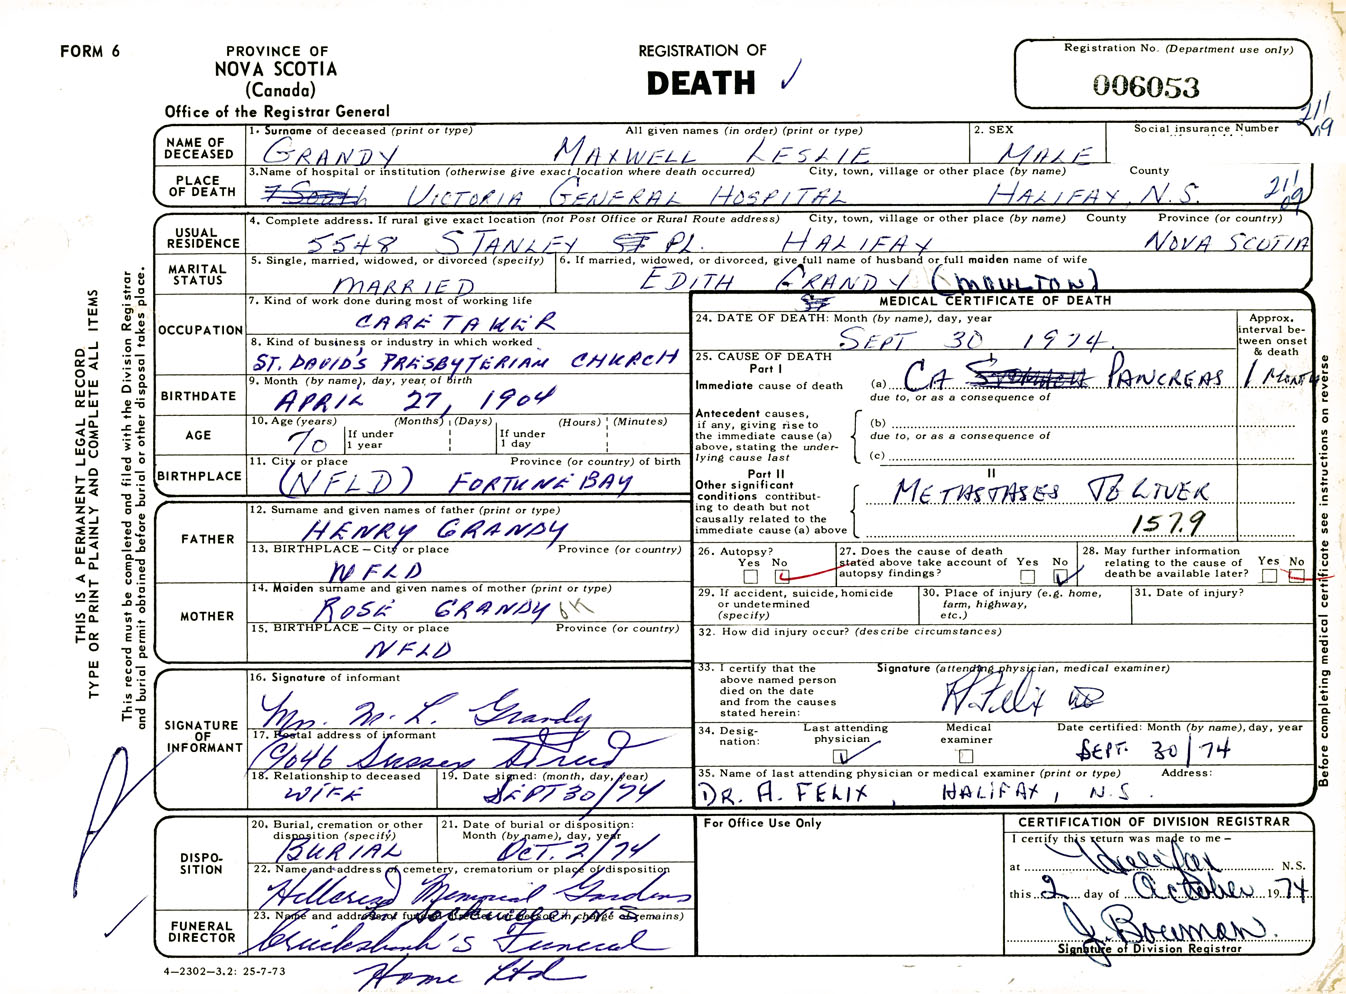 FORM 6
PROVINCE OF
NOVA SCOTIA
(Canada)
Office of the Registrar General
REGISTRATION OF
DEATH
Registration No. (Department use only)
006053
21/
69
NAME OF
DECEASED
1. Surname of deceased (print or type) All given names (in order) (print or type) 2. SEX Social insurance Number
GRANDY MAXWELL LESLIE MALE
PLACE
OF DEATH
3. Name of hospital or institution (otherwise give exact location where death occurred) City, town, village or other place (by name) County
VICTORIA GENERAL HOSPITAL HALIFAX, N.S.
21/
69
USUAL
RESIDENCE
4. Complete address. If rural give exact location (not Post Office or Rural Route address) City, town, village or other place (by name) County Province (or country)
5548 STANLEY PL. HALIFAX NOVA SCOTIA
MARITAL
STATUS
5. Single, married, widowed, or divorced (specify) 6. If married, widowed, or divorced, give full name of husband or full maiden name of wife
MARRIED EDITH GRANDY (MOULTON)
OCCUPATION
7. Kind of work done during most of working life
CARETAKER
8. Kind of business or industry in which worked
ST. DAVID'S PRESBYTERIAN CHURCH
BIRTHDATE
9. Month (by name), day, year of birth
APRIL 27, 1904
AGE
10. Age (years) (Months) (Days) (Hours) (Minutes)
70 If under
1 year
If under
1 day
BIRTHPLACE
11. City or place Province (or country) of birth
(NFLD) FORTUNE BAY
FATHER
12. Surname and given names of father (print or type)
HENRY GRANDY
13. BIRTHPLACE – City or place Province (or country)
NFLD
MOTHER
14. Maiden surname and given names of mother (print or type)
ROSE GRANDY OK
15. BIRTHPLACE – City or place Province (or country)
NFLD
SIGNATURE
OF
INFORMANT
16. Signature of informant
Mrs. M. L. Grandy
17. Postal address of informant
Sussex Street
18. Relationship to deceased 19. Date signed: (month, day, year)
WIFE SEPT 30/74
DISPO-
SITION
20. Burial, cremation or other
disposition (specify)
BURIAL
21. Date of burial or disposition:
Month (by name), day, year
OCT. 2/74
22. Name and address of cemetery, crematorium or place of disposition
Hillcrest Memorial Gardens
FUNERAL
DIRECTOR
23. Name and address of funeral director (or person in charge of remains)
Cruikshank's Funeral
Home Ltd
4–2302–3.2: 25-7-73
MEDICAL CERTIFICATE OF DEATH
24. DATE OF DEATH: Month (by name), day, year
SEPT 30 1974.
Approx.
interval be-
tween onset
& death
25. CAUSE OF DEATH
Part I
Immediate cause of death (a) CA PANCREAS 1 MONTH
due to, or as a consequence of
Antecedent causes,
if any, giving rise to
the immediate cause (a)
above, stating the under-
lying cause last
(b)
due to, or as a consequence of
(c)
Part II
Other significant
conditions contribut-
ing to death but not
causally related to the
immediate cause (a) above
II
METASTASES TO LIVER
157.9
26. Autopsy?
Yes No
27. Does the cause of death
stated above take account of
autopsy findings?
Yes No
28. May further information
relating to the cause of
death be available later?
Yes No
29. If accident, suicide, homicide
or undetermined
(specify)
30. Place of injury (e.g. home,
farm, highway,
etc.)
31. Date of injury?
32. How did injury occur? (describe circumstances)
33. I certify that the
above named person
died on the date
and from the causes
stated herein:
Signature (attending physician, medical examiner)
A. Felix MD
34. Desig-
nation:
Last attending
physician
Medical
examiner
Date certified: Month (by name), day, year
SEPT. 30/74
35. Name of last attending physician or medical examiner (print or type) Address:
DR. A. FELIX, HALIFAX, N.S.
For Office Use Only
CERTIFICATION OF DIVISION REGISTRAR
I certify this return was made to me –
at Halifax N.S.
this 2 day of October 1974
J. Bowman.
Signature of Division Registrar
THIS IS A PERMANENT LEGAL RECORD
TYPE OR PRINT PLAINLY AND COMPLETE ALL ITEMS
This record must be completed and filed with the Division Registrar
and burial permit obtained before burial or other disposal takes place.
Before completing medical certificate see instructions on reverse